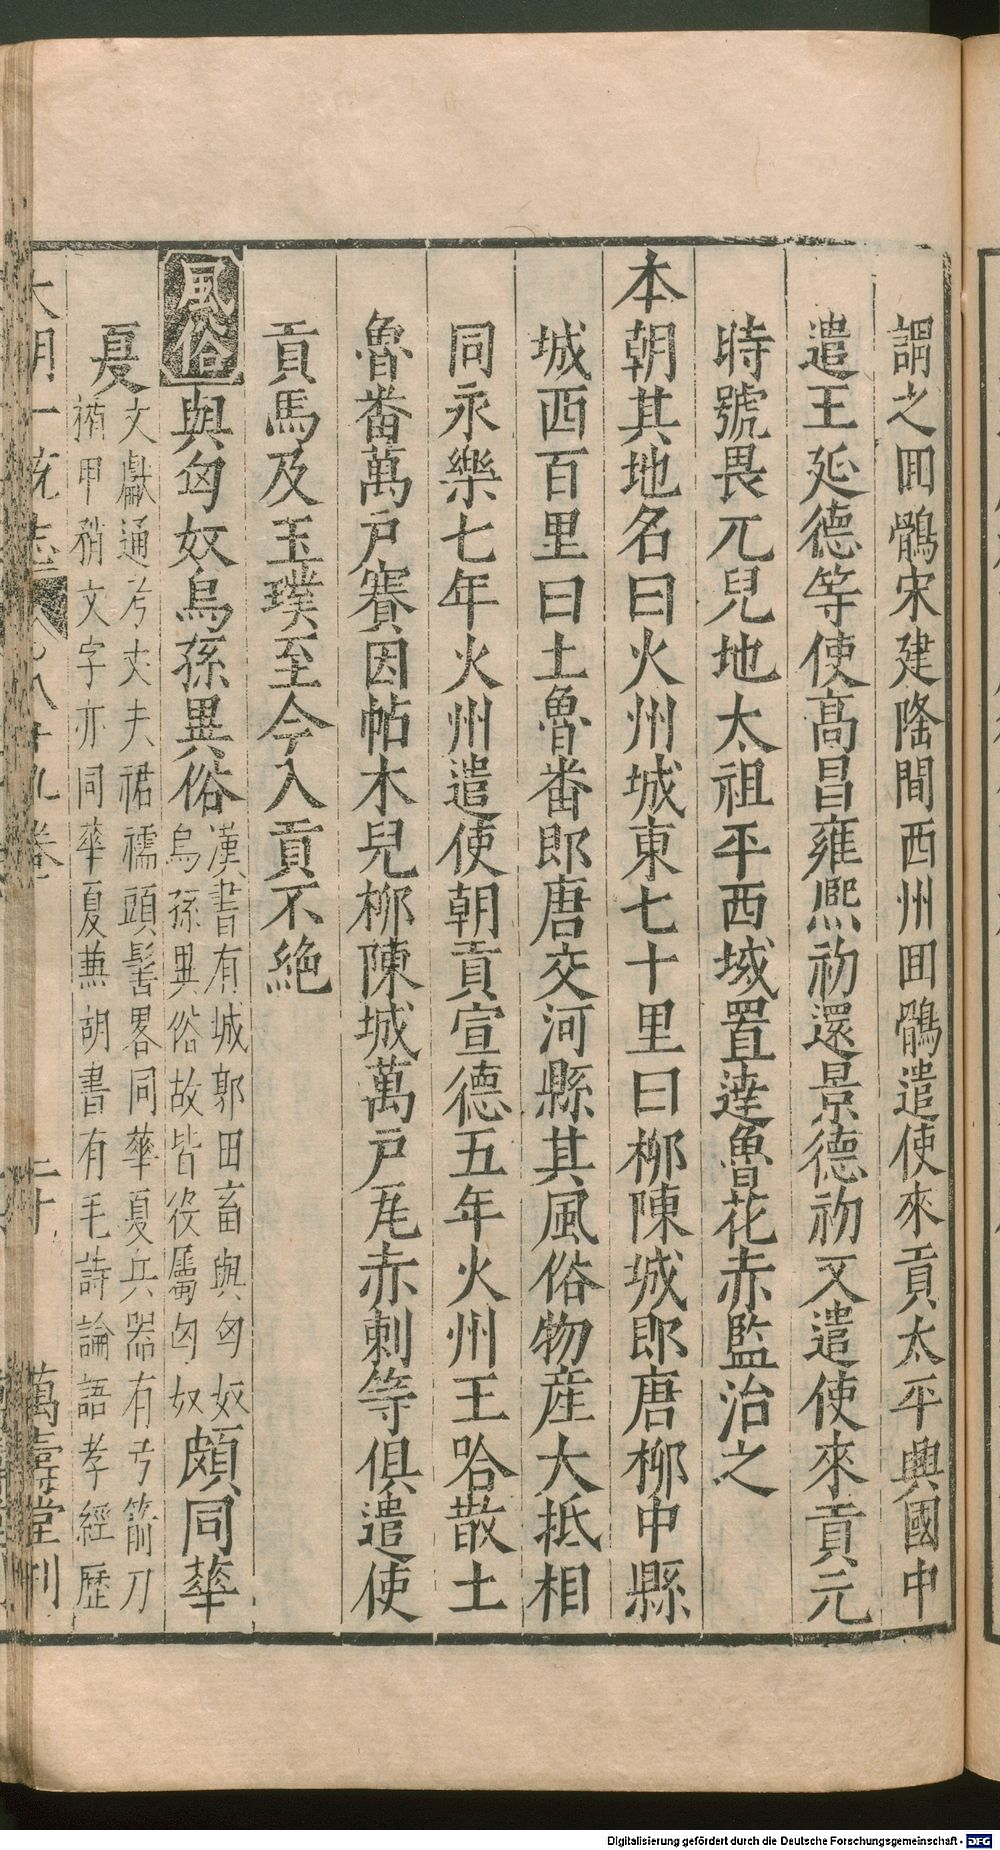 謂之囬鶻宋建隆間西州囬鶻遣使來貢太平興國中
遣王延德等使髙昌雍熙初還景德初又遣使來貢元
時號畏兀兒地太祖平西域置達魯花赤監治之
本朝其地名曰火州城東七十里曰柳陳城即唐柳中縣
城西百里曰土魯番即唐交河縣其風俗物産大抵相
同永樂七年火州遣使朝貢宣德五年火州王哈散土
魯番萬户賽因帖木兒柳陳城萬戸瓦赤剌等俱遣使
貢馬及玉璞至今入貢不絶
風俗與匈奴烏孫異俗
漢書有城郭田畜與匈奴
烏孫異俗故皆役屬匈奴
頗同華
夏
文獻通考丈夫裙襦頭髻畧同華夏兵器有弓箭刀
楯甲矟文字亦同華夏兼胡書有毛詩論語孝經歷
大明一統志 八十九卷 二十 萬壽堂刊
Digitalisierung gefördert durch die Deutsche Forschungsgemeinschaft - DFG